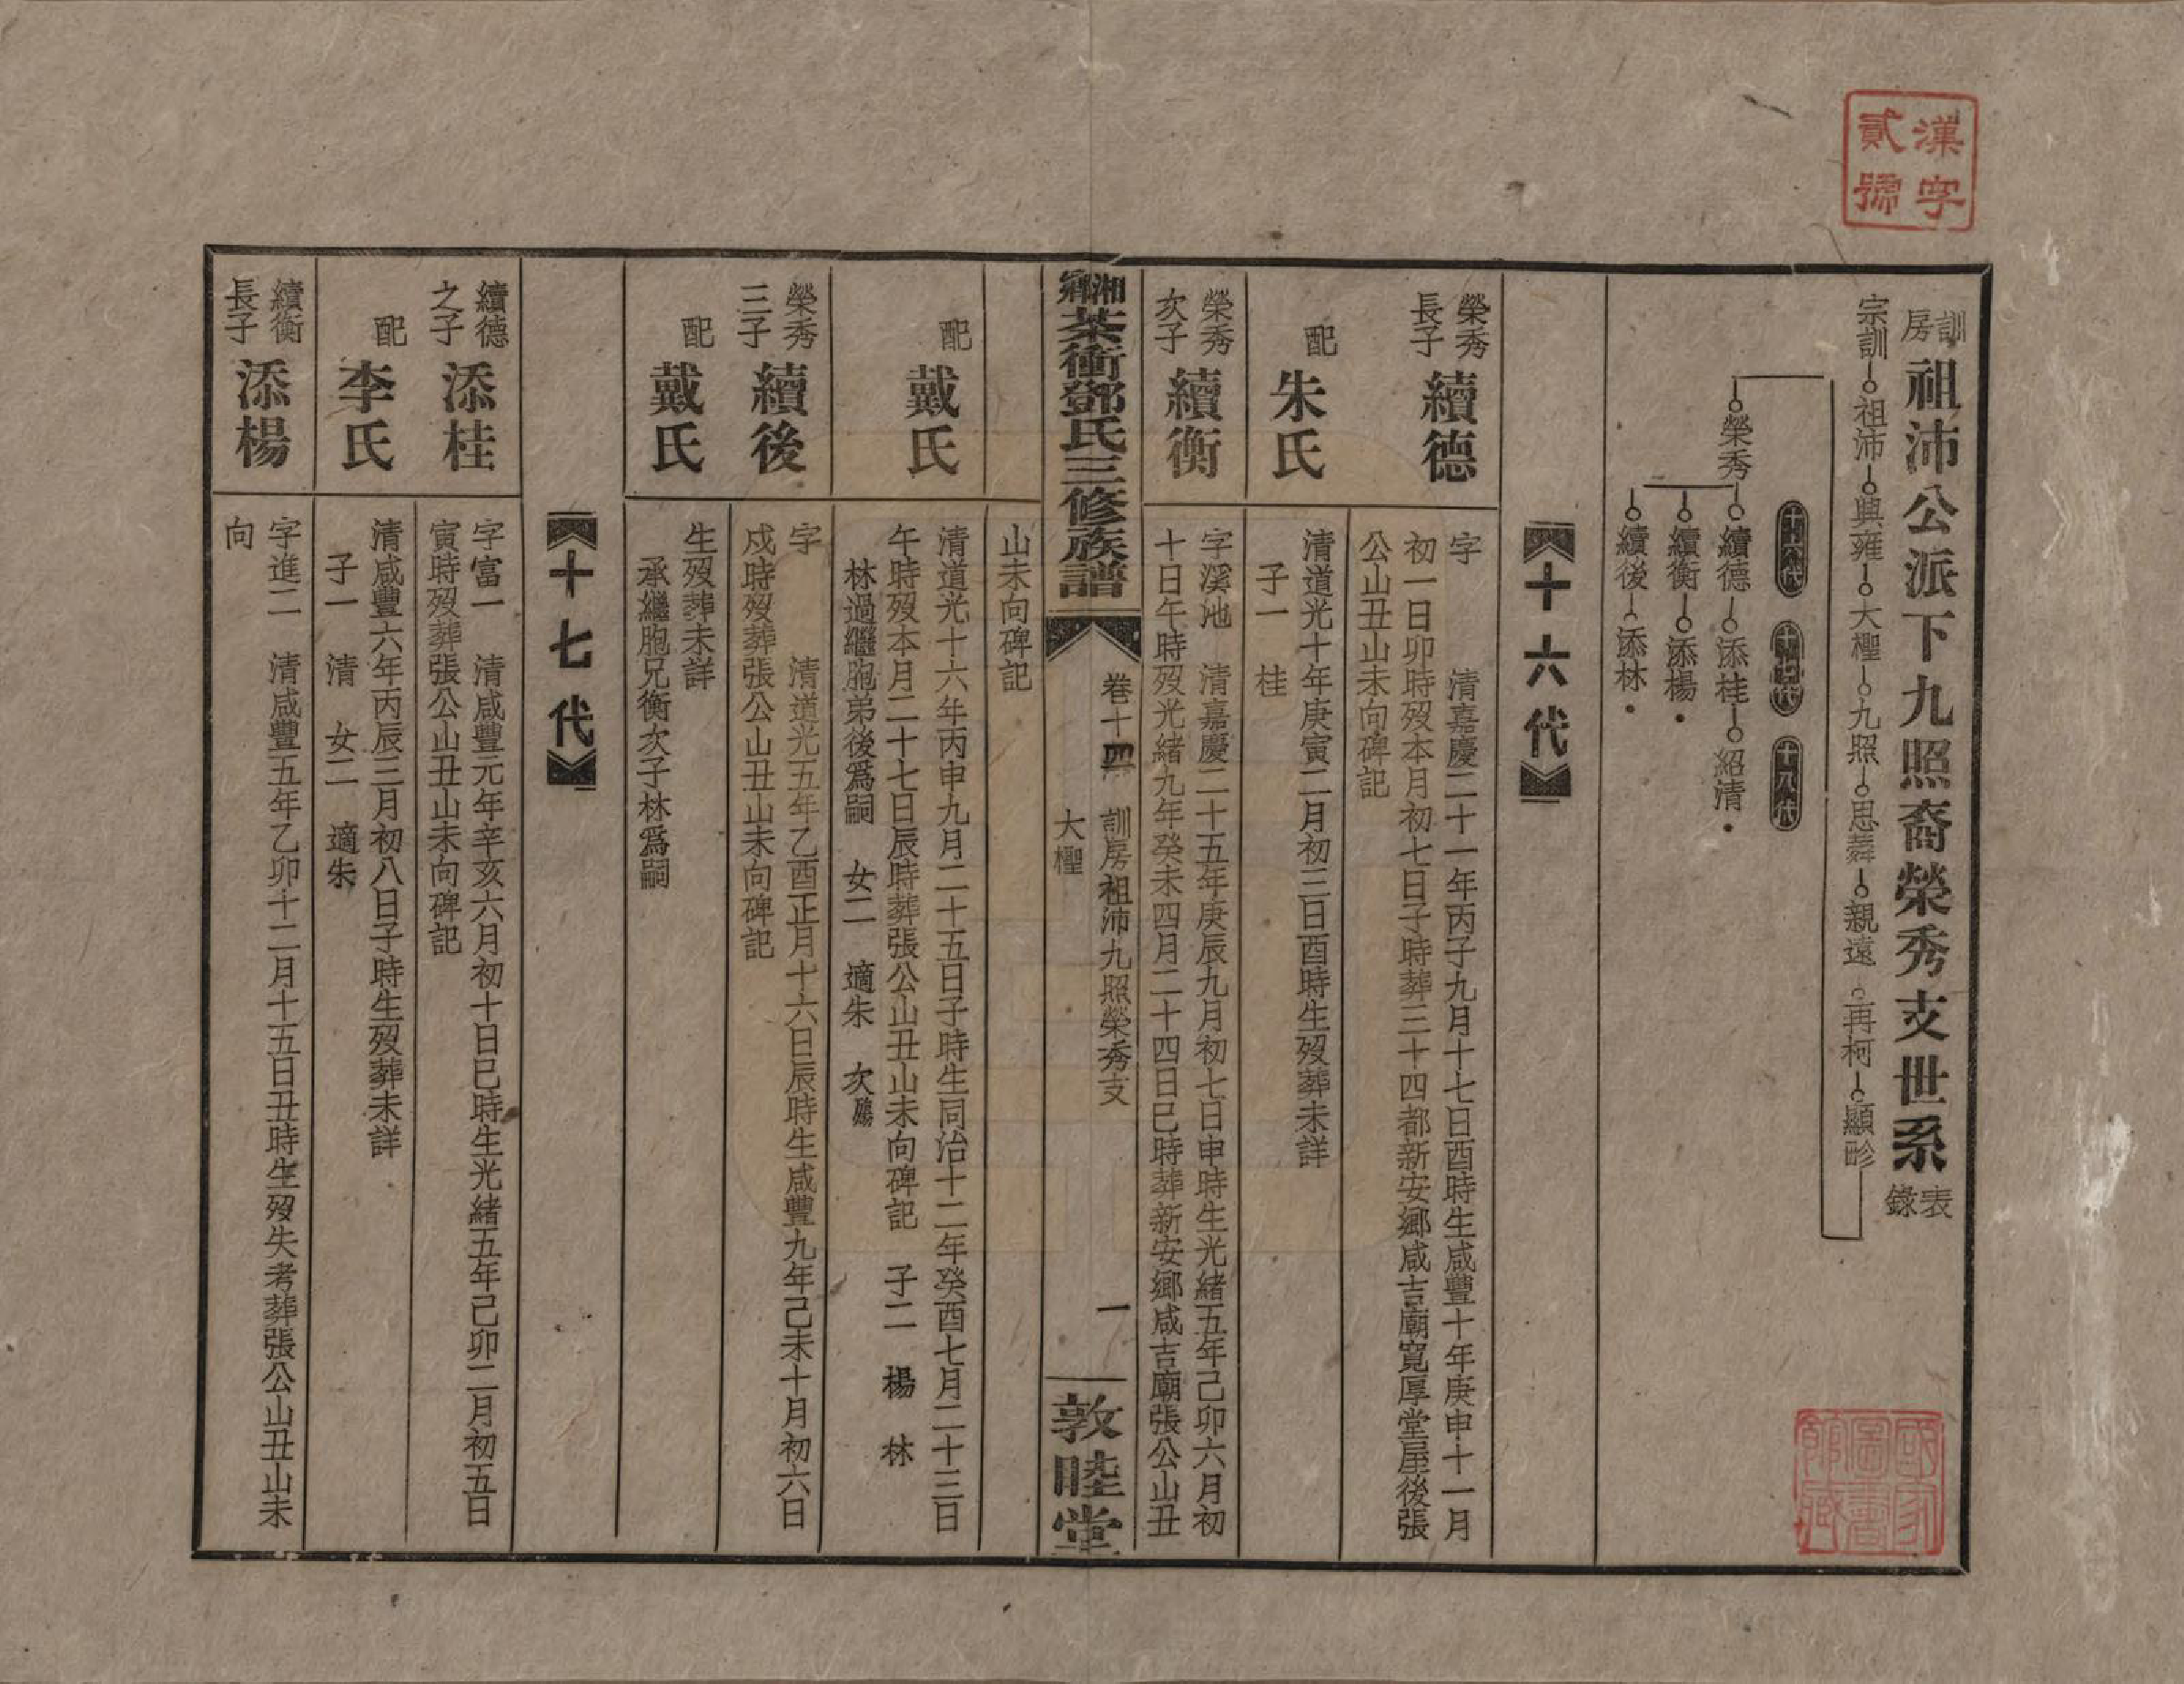 漢字
貳號
訓房祖沛公派下九照裔榮秀支世系表錄
宗訓 祖沛 興雍 大櫸 九照 思舞 親遠 再柯 顯畛
十六代 十七代 十八代
榮秀 續德 添桂 紹清
續衡 添楊
續後 添林
十六代
榮秀長子 續德
字 清嘉慶二十一年丙子九月十七日酉時生咸豐十年庚申十一月
初一日卯時歿本月初七日子時葬三十四都新安鄉咸吉廟寬厚堂屋後張
公山丑山未向碑記
配 朱氏
清道光十年庚寅二月初三日酉時生歿葬未詳
子一 桂
榮秀次子 續衡
字溪池 清嘉慶二十五年庚辰九月初七日申時生光緒五年己卯六月初
十日午時歿光緒九年癸未四月二十四日巳時葬新安鄉咸吉廟張公山丑
湘鄉茶衝鄧氏三修族譜
卷十四 訓房祖沛九照榮秀支
一
敦睦堂
山未向碑記
配 戴氏
清道光十六年丙申九月二十五日子時生同治十二年癸酉七月二十三日
午時歿本月二十七日辰時葬張公山丑山未向碑記 子二 楊 林
林過繼胞弟後為嗣 女二 適朱 次殤
榮秀三子 續後
字 清道光五年乙酉正月十六日辰時生咸豐九年己未十月初六日
戍時歿葬張公山丑山未向碑記
配 戴氏
生歿葬未詳
承繼胞兄衡次子林為嗣
十七代
續德之子 添桂
字富一 清咸豐元年辛亥六月初十日巳時生光緒五年己卯二月初五日
寅時歿葬張公山丑山未向碑記
配 李氏
清咸豐六年丙辰三月初八日子時生歿葬未詳
子一 清 女二 適朱
續衡長子 添楊
字進二 清咸豐五年乙卯十二月十五日丑時生歿失考葬張公山丑山未
向
國家圖書館藏